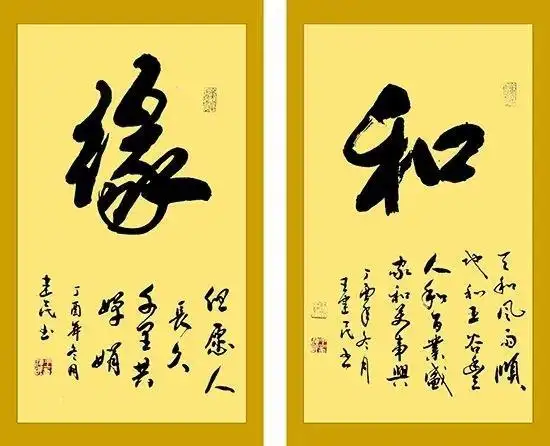 缘
但愿人
長久
千里共
嬋娟
丁酉年冬月
建民书
和
天和风雨順
地和五谷豐
人和百業盛
家和万事興
丁酉年冬月
王建民书